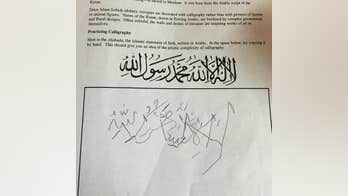 Since Islam forbids idolatry, mosques are decorated with calligraphy rather than with pictures of human
or animal figures. Verses of the Koran, drawn in flowing Arabic, are bordered by complex geometrical
and floral designs. Often colorful, the walls and domes of mosques are inspiring works of art.
Practicing Calligraphy
Here is the shahada, the Islamic statement of faith, written in Arabic. In the space below, try copying it
by hand. This should give you an idea of the artistic complexity of calligraphy.
لا إله إلا الله محمد رسول الله